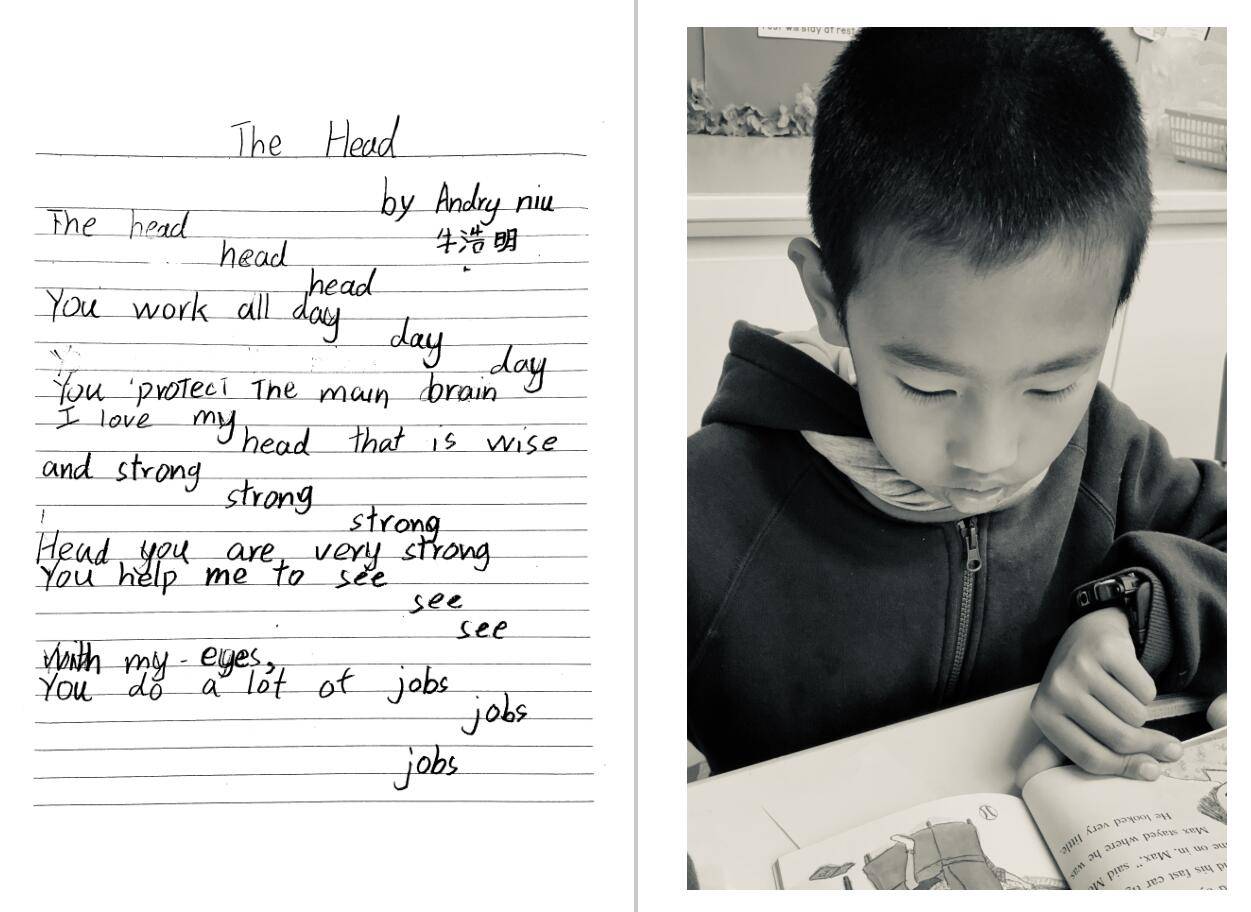 The Head
by Andry niu
牛浩明
The head
head
head
You work all day
day
day
You protect The main brain
I love my
head that is wise
and strong
strong
strong
Head you are very strong
You help me to see
see
see
With my eyes,
You do a lot of jobs
jobs
jobs
rest will stay at rest
He looked very little.
Max stayed where he was
me on in, Max," said
his fast car